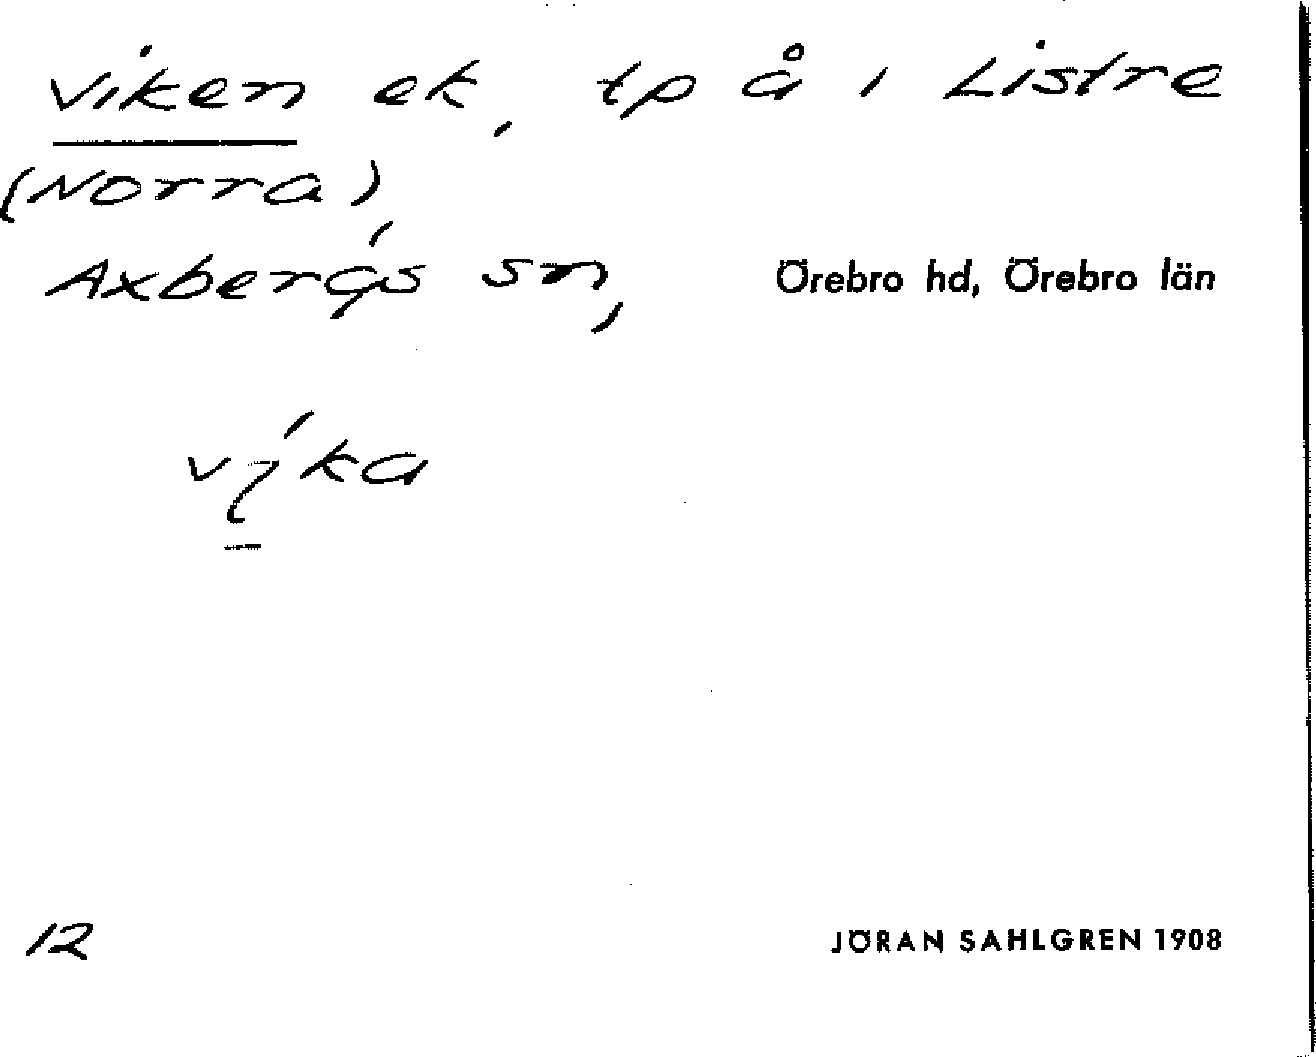 Viken ek, tp å i Listre
(Norra),
Axbergs sn, Örebro hd, Örebro län
víka
12
JÖRAN SAHLGREN 1908